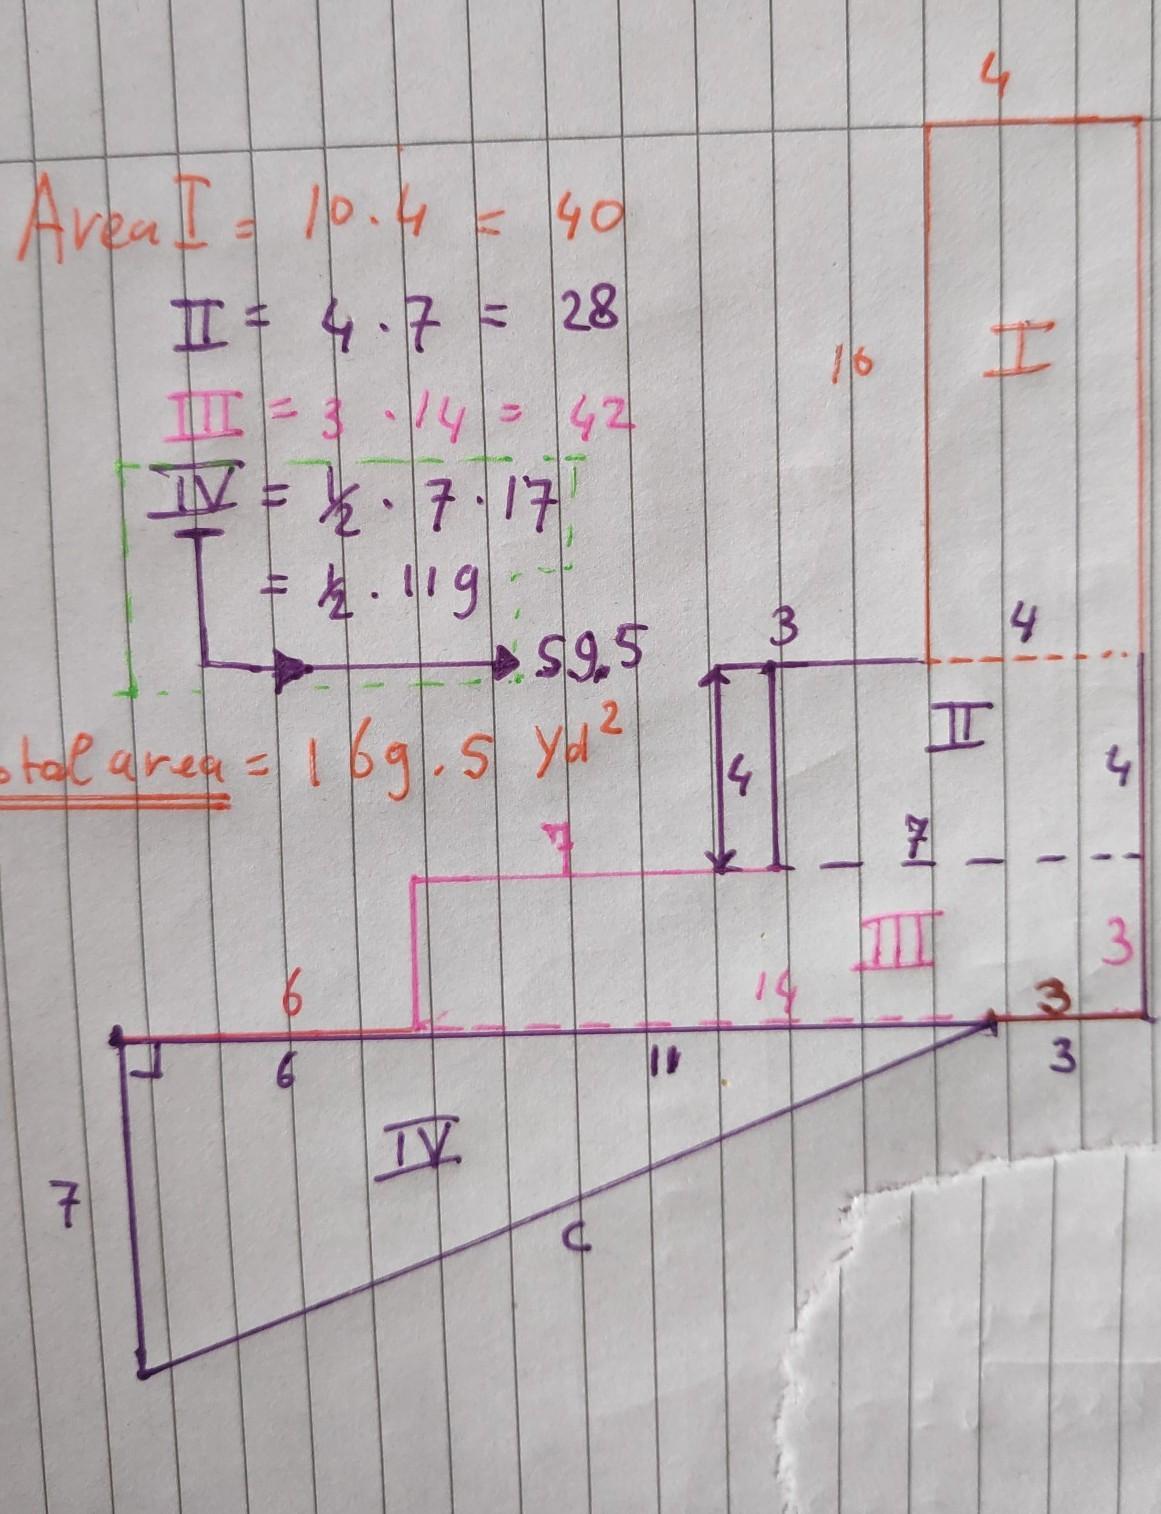 4
Area I = 10.4 = 40
II = 4.7 = 28
I
16
III = 3.14 = 42
IV = ½.7.17
= ½.119
3
4
59.5
II
otal area = 169.5 Yd²
4
4
7
7
III
3
6
14
3
6
11
3
IV
7
C